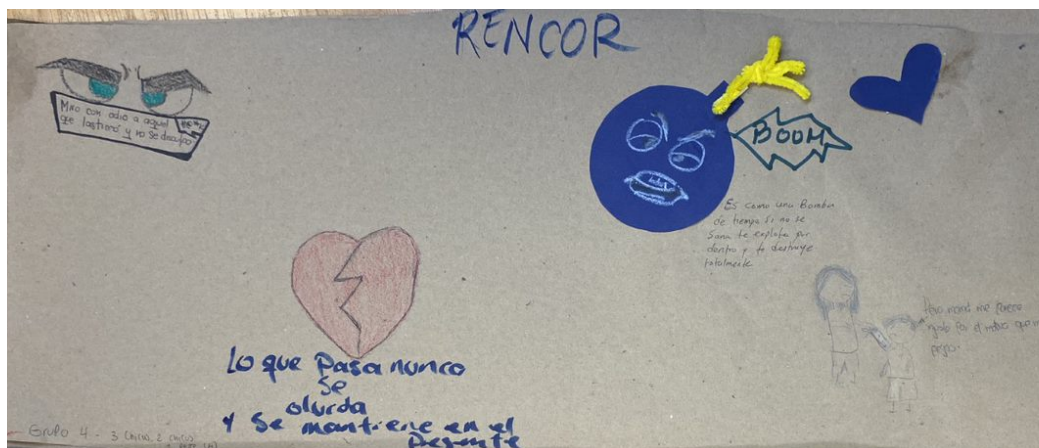 RENCOR
Miro con odio a aquel
que lastimó y no se disculpo
BOOM
Es como una Bomba
de tiempo si no se
Sana te explota por
dentro y te destruye
totalmente
mamá me
el niño que
pego.
Lo que Pasa nunca
Se
olvida
Y Se mantiene en el
Presente
GRUPO 4 - 3 chicas 2 chicos